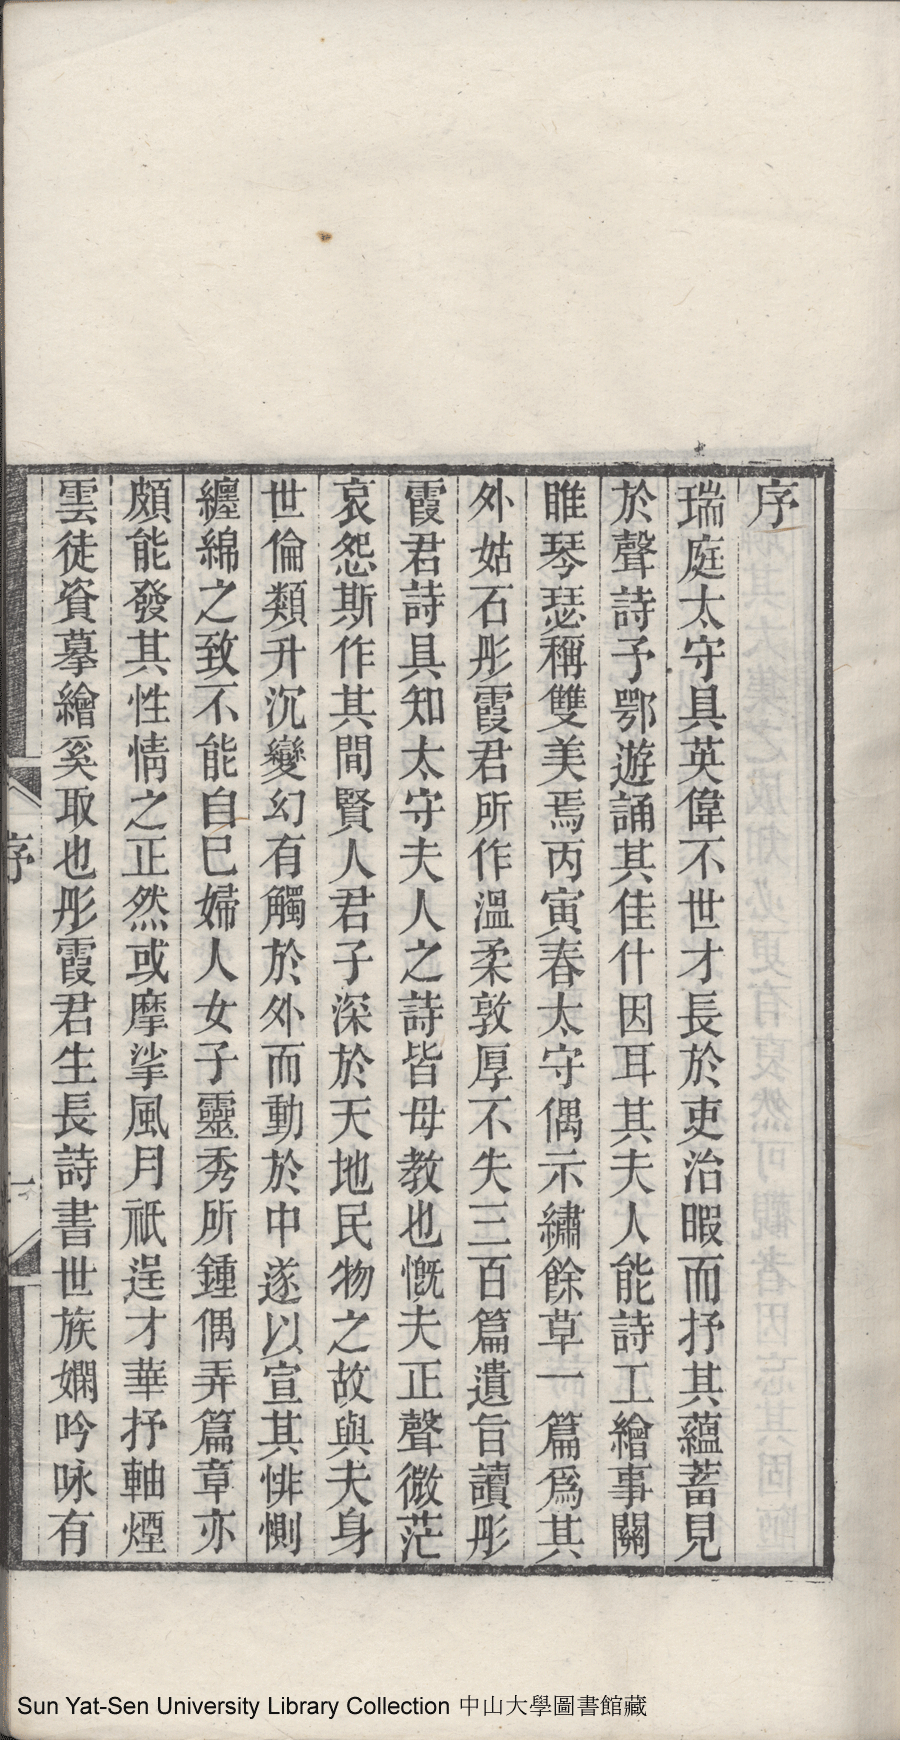 序
瑞庭太守具英偉不世才長於吏治暇而抒其蘊蓄見
於聲詩予鄂遊誦其佳什因耳其夫人能詩工繪事關
睢琴瑟稱雙美焉丙寅春太守偶示繡餘草一篇爲其
外姑石彤霞君所作溫柔敦厚不失三百篇遺旨讀彤
霞君詩具知太守夫人之詩皆母教也慨夫正聲微茫
哀怨斯作其間賢人君子深於天地民物之故與夫身
世倫類升沉變幻有觸於外而動於中遂以宣其悱惻
纏綿之致不能自已婦人女子靈秀所鍾偶弄篇章亦
頗能發其性情之正然或摩挲風月祇逞才華抒軸煙
雲徒資摹繪奚取也彤霞君生長詩書世族嫻吟咏有
序
一
Sun Yat-Sen University Library Collection 中山大學圖書館藏